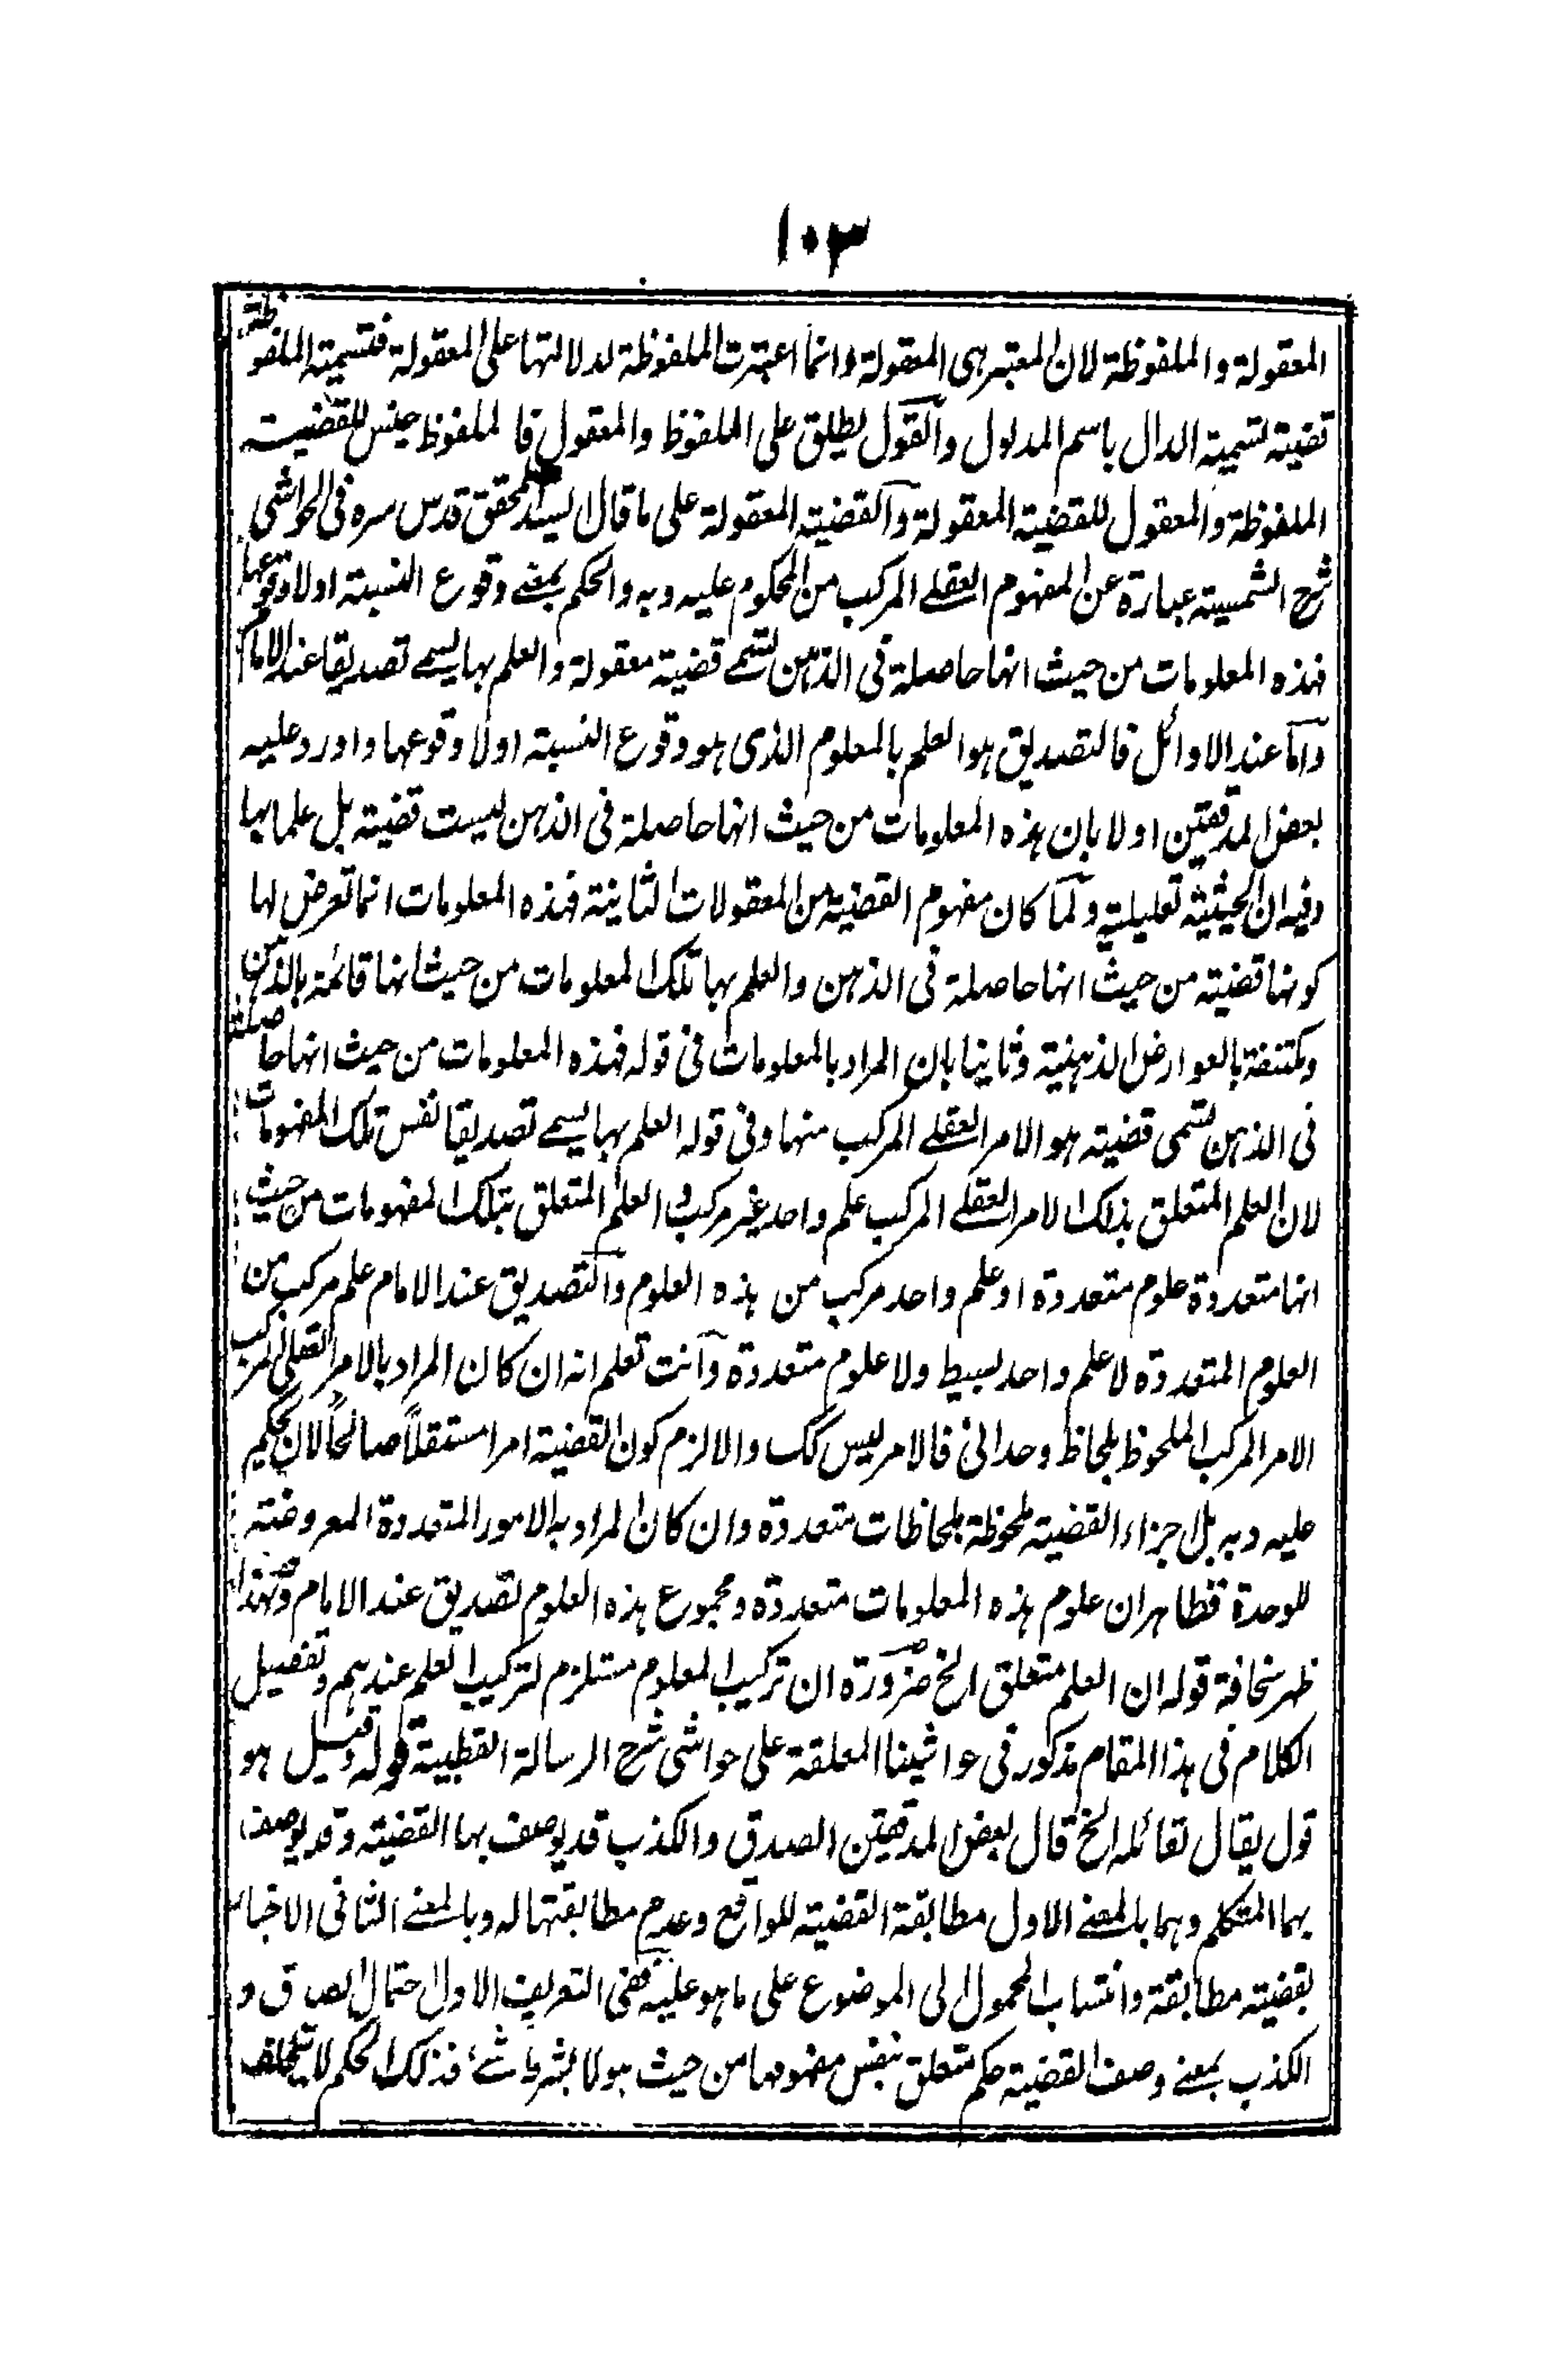 ١٠٣
المعقولة والملفوظة لان المعتبر هى المعقولة وانما اعتبرت الملفوظة لدلالتها على المعقولة فتسمية الملفوظة
قضية تسمية الدال باسم المدلول والقول يطلق على الملفوظ والمعقول فالملفوظ جنس للقضية
الملفوظة والمعقول للقضية المعقولة والقضية المعقولة على ما قال السيد المحقق قدس سره فى الحواشى
شرح الشمسية عبارة عن المفهوم العقلے المركب من المحكوم عليه وبه والحكم بمعنے وقوع النسبة اولا وقوعها
فهذه المعلومات من حيث انها حاصلة فى الذهن تسمے قضية معقولة والعلم بها يسمے تصديقا عند الامام
واما عند الاوائل فالتصديق هو العلم بالمعلوم الذى هو وقوع النسبة اولا وقوعها واورد عليه
بعض المدققين اولا بان هذه المعلومات من حيث انها حاصلة فى الذهن ليست قضية بل علما بها
وفيه ان الحيثية تعليلية ولما كان مفهوم القضية من المعقولات الثانية فهذه المعلومات انما تعرض لها
كونها قضية من حيث انها حاصلة فى الذهن والعلم بها تلك المعلومات من حيث انها قائمة بالذهن
ومكتنفة بالعوارض الذهنية وثانيا بان المراد بالمعلومات فى قوله فهذه المعلومات من حيث انها حاصلة
فى الذهن تسمى قضية هو الامر العقلے المركب منها وفى قوله العلم بها يسمے تصديقا نفس تلك المفهومات
لان العلم المتعلق بذلك الامر العقلے المركب علم واحد غير مركب والعلم المتعلق بتلك المفهومات من حيث
انها متعددة علوم متعددة او علم واحد مركب من هذه العلوم والتصديق عند الامام علم مركب من
العلوم المتعددة لا علم واحد بسيط ولا علوم متعددة وانت تعلم انه ان كان المراد بالامر العقلى المركب
الامر المركب الملحوظ بلحاظ وحدانى فالامر ليس كك والا لزم كون القضية امرا مستقلاً صالحاً لان يحكم
عليه وبه بل اجزاء القضية ملحوظة بلحاظات متعددة وان كان المراد به الامور المتعددة المعروضة
للوحدة فظاهر ان علوم هذه المعلومات متعددة ومجموع هذه العلوم تصديق عند الامام وبهذا
ظهر سخافة قوله ان العلم متعلق الخ ضرورة ان تركيب المعلوم مستلزم لتركيب العلم عندهم وتفصيل
الكلام فى هذا المقام مذكور فى حواشينا المعلقة على حواشى شرح الرسالة القطبية قوله وقيل هو
قول يقال لقائله الخ قال بعض المدققين الصدق والكذب قد يوصف بهما القضية وقد يوصف
بهما المتكلم وهما بالمعنے الاول مطابقة القضية للواقع وعدم مطابقتها له وبالمعنے الثانى الاخبار
بقضية مطابقة وانتساب المحمول الى الموضوع على ما هو عليه ففى التعريف الاول احتمال الصدق و
الكذب بمعنے وصف القضية حكم متعلق بنفس مفهومها من حيث هو لا بشرط شے فذلك الحكم لا يتخلف